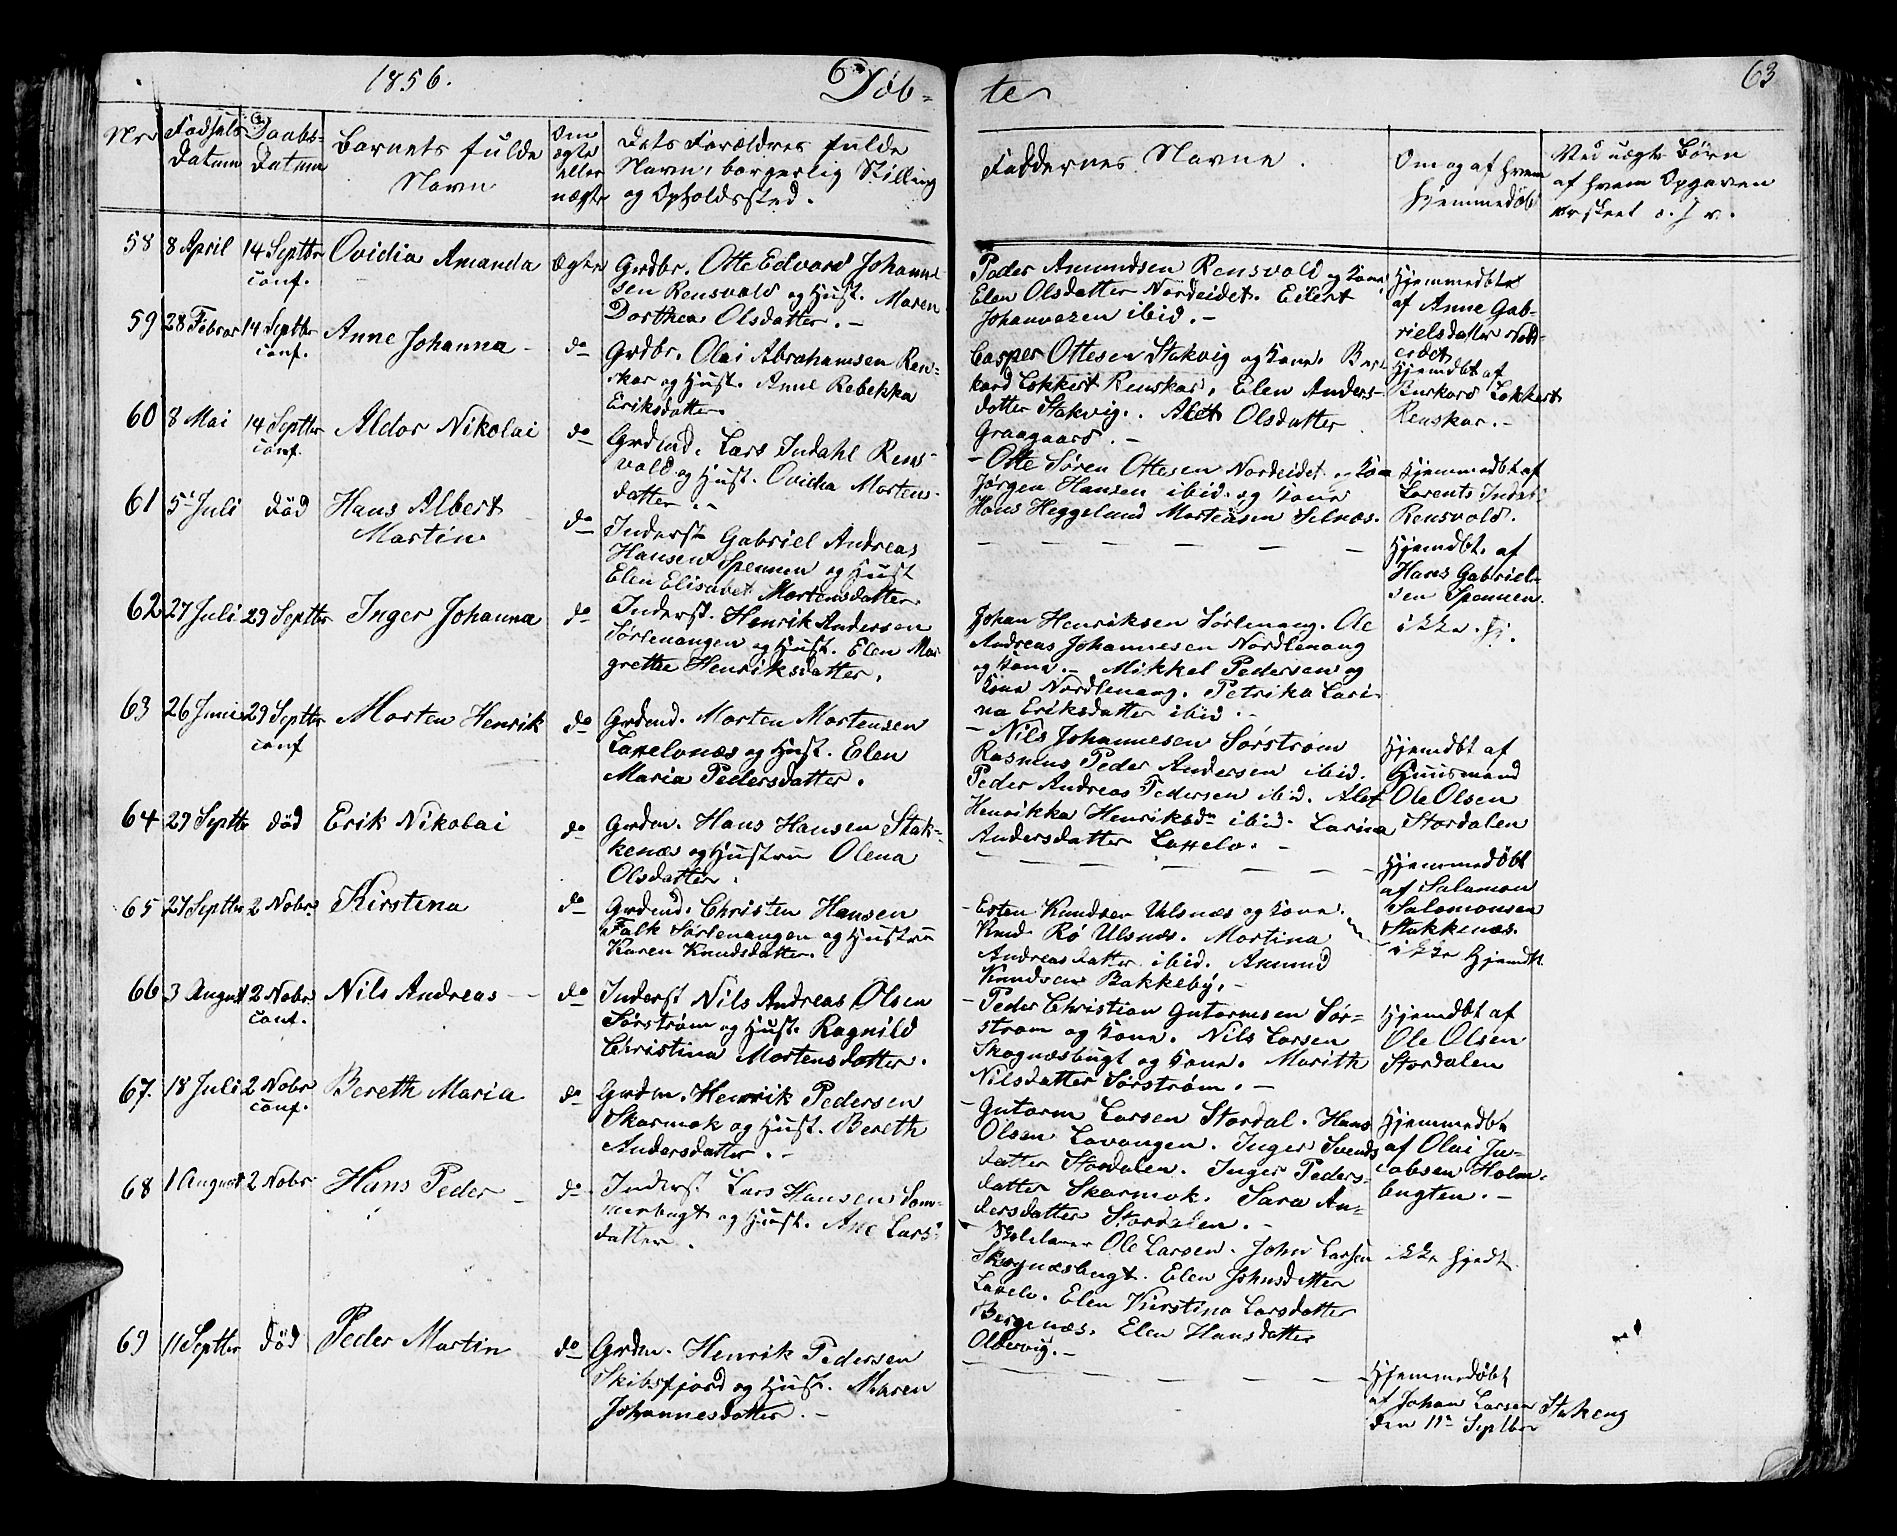 1856. Døb- te 63
Nr Fødsels Datum Daabs- Datum Barnets fulde Navn Om ægte eller uægte Dets Forældres fulde Navn, borgerlig Stilling og Opholdssted. Faddernes Navne. Om og af hvem hjemmedøbt Ved uægte Børn af hvem Opgaven er skeet o. s. v.
58 8 April 14 Septbr conf. Ovidia Amanda Ægte
Grdbr. Otte Edvard Johanne-
sen Rensvold og Hust. Maren
Dorthea Olsdatter. -
Peder Amundsen Rensvold og Kone,
Elen Olsdatter Nordeidet. Eilert
Johannesen ibid. -
Hjemmedbt
af Anne Gab-
rielsdatter Nord-
eidet
59 28 Februar 14 Septbr conf. Anne Johanna - do
Grdbr. Olai Abrahamsen Ren-
skar og Hust. Anne Rebekka
Eriksdatter.
Casper Ottesen Stakvig og Kone. Bur-
kard Lokkert Renskar, Elen Anders-
datter Stakvig. Alet Olsdatter
Graagaard. -
Hjemdbt af
Burkard Lokkert
Renskar. -
60 8 Mai 14 Septbr conf. Aldor Nikolai do
Grdmd. Lars Indahl Rens-
vold og Hust. Ovidia Mortens-
datter. -
- Otte Søren Ottesen Nordeidet og Kone
Jørgen Hansen ibid. og Kone
Hans Heggelund Mortensen Selnæs.
Hjemmedbt af
Lorents Indahl
Rensvold.
61 5 Juli død Hans Albert
Martin do
Inderst Gabriel Andreas
Hansen Spennen og Hust
Elen Elisabet Mortensdatter.
- - - - - -
Hjemdbt. af
Hans Gabriel-
sen Spennen.
62 27 Juli 29 Septbr Inger Johanna do
Inderst. Henrik Andersen
Sørlenangen og Hust. Elen Mar
grethe Henriksdatter.
Johan Henriksen Sørlenang. Ole
Andreas Johannesen Nordlenang
og Kone. - Mikkel Pedersen og
Kone Nordlenang. Petrika Lari-
na Eriksdatter ibid. -
ikke hj.
63 26 Juni 29 Septbr conf Morten Henrik do
Grdmd. Morten Mortensen
Lakselvnæs og Hust. Elen
Maria Pedersdatter.
- Nils Johannesen Sørstrøm
Rasmus Peder Andersen ibid.
Peder Andreas Pedersen ibid. Alet
Henrikka Henriksdr ibid. Larina
Andersdatter Lakselv. -
Hjemdbt af
Huusmand
Ole Olsen
Stordalen
64 29 Septbr død Erik Nikolai do
Grdm. Hans Hansen Stak-
kenæs og Hustru Olena
Olsdatter.
- - - - - -
Hjemmedøbt
af Salamon
Salamonsen
Stakkenæs.
65 27 Septbr 2 Nobr. Kirstina do
Grdmd. Christen Hansen
Falk Sørlenangen og Hustru
Karen Knudsdatter.
- Esten Knudsen Ulsnæs og Kone.
Knud Rø Ulsnæs. Martina
Andreasdatter ibid. Amund
Knudsen Bakkeby. -
- ikke hjemdbt.
66 3 August 2 Nobr conf. Nils Andreas - do
Inderst Nils Andreas Olsen
Sørstrøm og Hust. Ragnild
Christina Mortensdatter.
- Peder Christian Gutormsen Sør-
strøm og Kone. Nils Larsen
Skognæsbugt og Kone. Marith
Nilsdatter Sørstrøm. -
Hjemdbt af
Ole Olsen
Stordalen
67. 18 Juli 2 Nobr conf. Bereth Maria do
Grdm. Henrik Pedersen
Skarmok og Hust. Bereth
Andersdatter. -
- Gutorm Larsen Stordal. Hans
Olsen Lavangen. Inger Svends
datter Stordalen. Inger Peders-
datter Skarmok. Sara An-
dersdatter Stordalen. -
Hjemmedbt
af Olai Ja-
cobsen Holm-
bugten. -
68 1 August 2 Nobr Hans Peder - do
Inderst. Lars Hansen Som-
merbugt og Hust. Ane Lars-
datter.
- Skolelærer Ole Larsen. John Larsen
Skognæsbugt. Elen Johnsdatter
Lakselv. Elen Kirstina Larsdatter
Bergenæs. Elen Hansdatter
Oldervig. -
ikke hjedt.
69 11 Septbr død Peder Martin do
Grdm. Henrik Pedersen
Skibsfjord og Hust. Maren
Johannesdatter. -
- - - - - -
Hjemmedøbt
af Johan Larsen Stakeng
den 11te Septbr